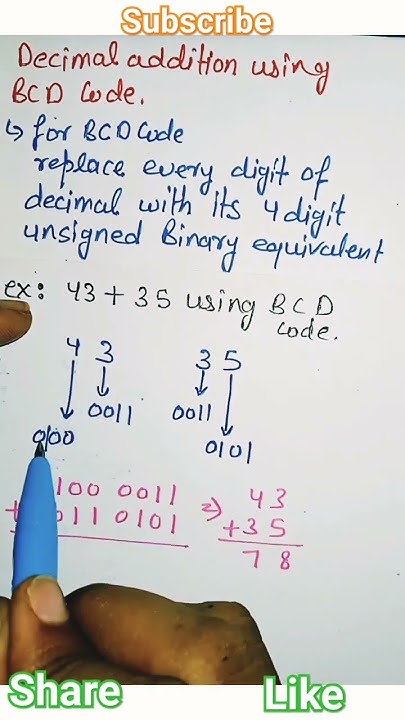 Subscribe
Decimal addition using
BCD Code.
↳ for BCD Code
replace every digit of
decimal with its 4 digit
unsigned Binary equivalent
ex: 43 + 35 using BCD
Code.
4 3 3 5
0011 0011
0100 0101
100 0011 ⇒ 43
+ 011 0101 +35
78
Share Like